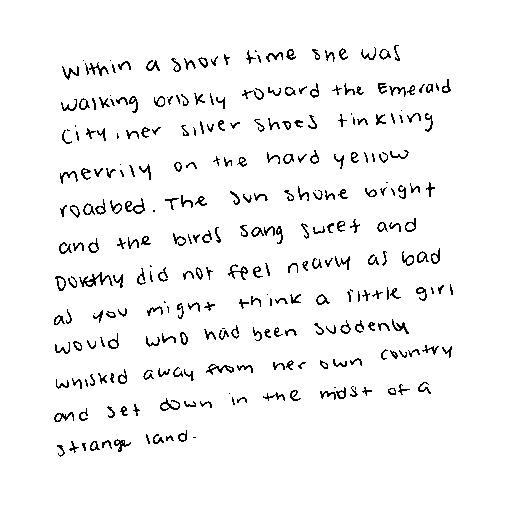 Within a short time she was
walking briskly toward the Emerald
City, her silver shoes tinkling
merrily on the hard yellow
roadbed. The sun shone bright
and the birds sang sweet and
Dorothy did not feel nearly as bad
as you might think a little girl
would who had been suddenly
whisked away from her own country
and set down in the midst of a
strange land.